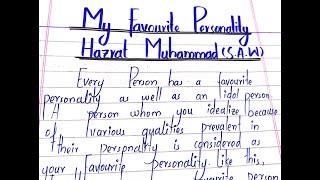 My Favourite Personality
Hazrat Muhammad (S.A.W)
Every Person has a favourite
personality as well as an idol person.
A person whom you idealize because
of various qualities prevalent in
their personality is considered as
your favourite personality like this,
favourite person